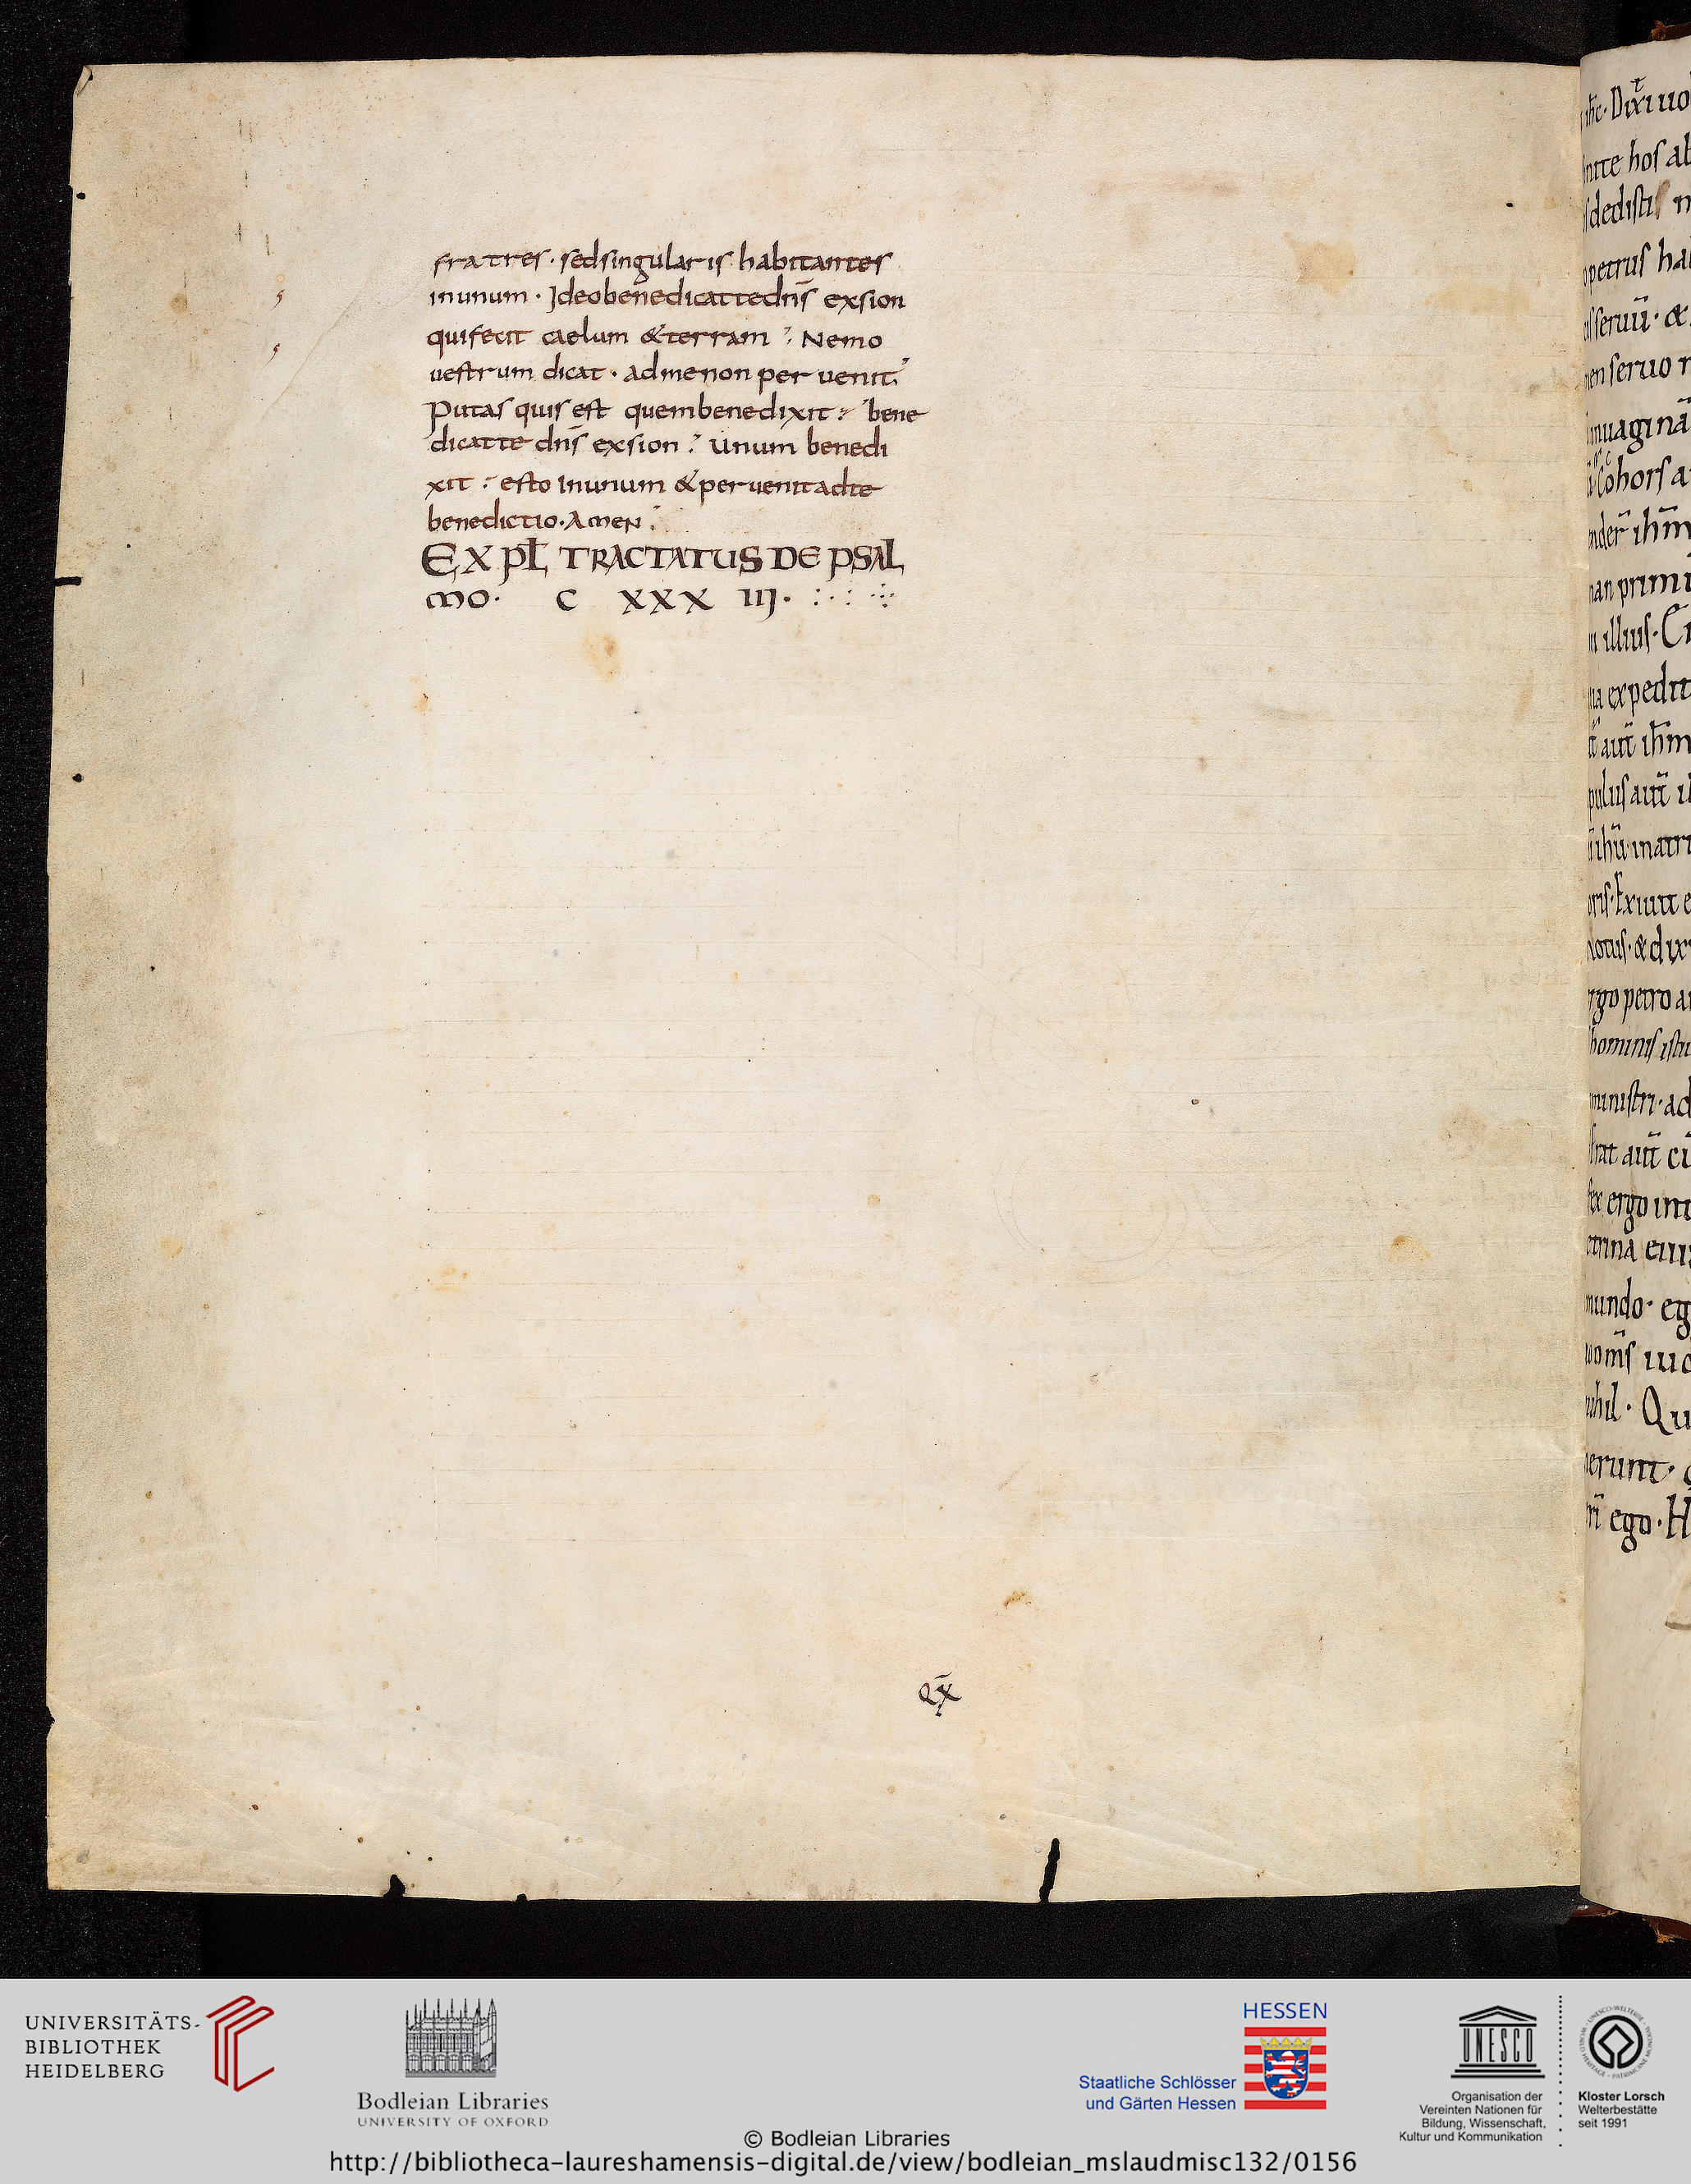 fratres · sedsingularis habitantes
inunum · Ideobenedicattedn̄s exsion
quifecit caelum &terram ; Nemo
uestrum dicat · admenon per uenit;
putas quis est quembenedixit ; bene
dicatte dn̄s exsion ; unum benedi
xit ; esto inunum & peruenitadte
benedictio · AMEN ;
EXPL̄ TRACTATUS DE PSAL
MO · C XXX III ·
Q X̄
ihc · Dixi uo
hos
dedisti
petrus
seruū · &
seruo
uaginā
Cohors
ihm
primi
illius ·
expedit
aut̄ ihm
aut̄
ihū
& dixi
petro
hominis
ministri · ad
aut̄
ergo
mundo ·
om̄s
Qu
ego · H
UNIVERSITÄTS-
BIBLIOTHEK
HEIDELBERG
Bodleian Libraries
UNIVERSITY OF OXFORD
HESSEN
Staatliche Schlösser
und Gärten Hessen
UNESCO
Organisation der
Vereinten Nationen für
Bildung, Wissenschaft,
Kultur und Kommunikation
Kloster Lorsch
Welterbestätte
seit 1991
© Bodleian Libraries
http://bibliotheca-laureshamensis-digital.de/view/bodleian_mslaudmisc132/0156